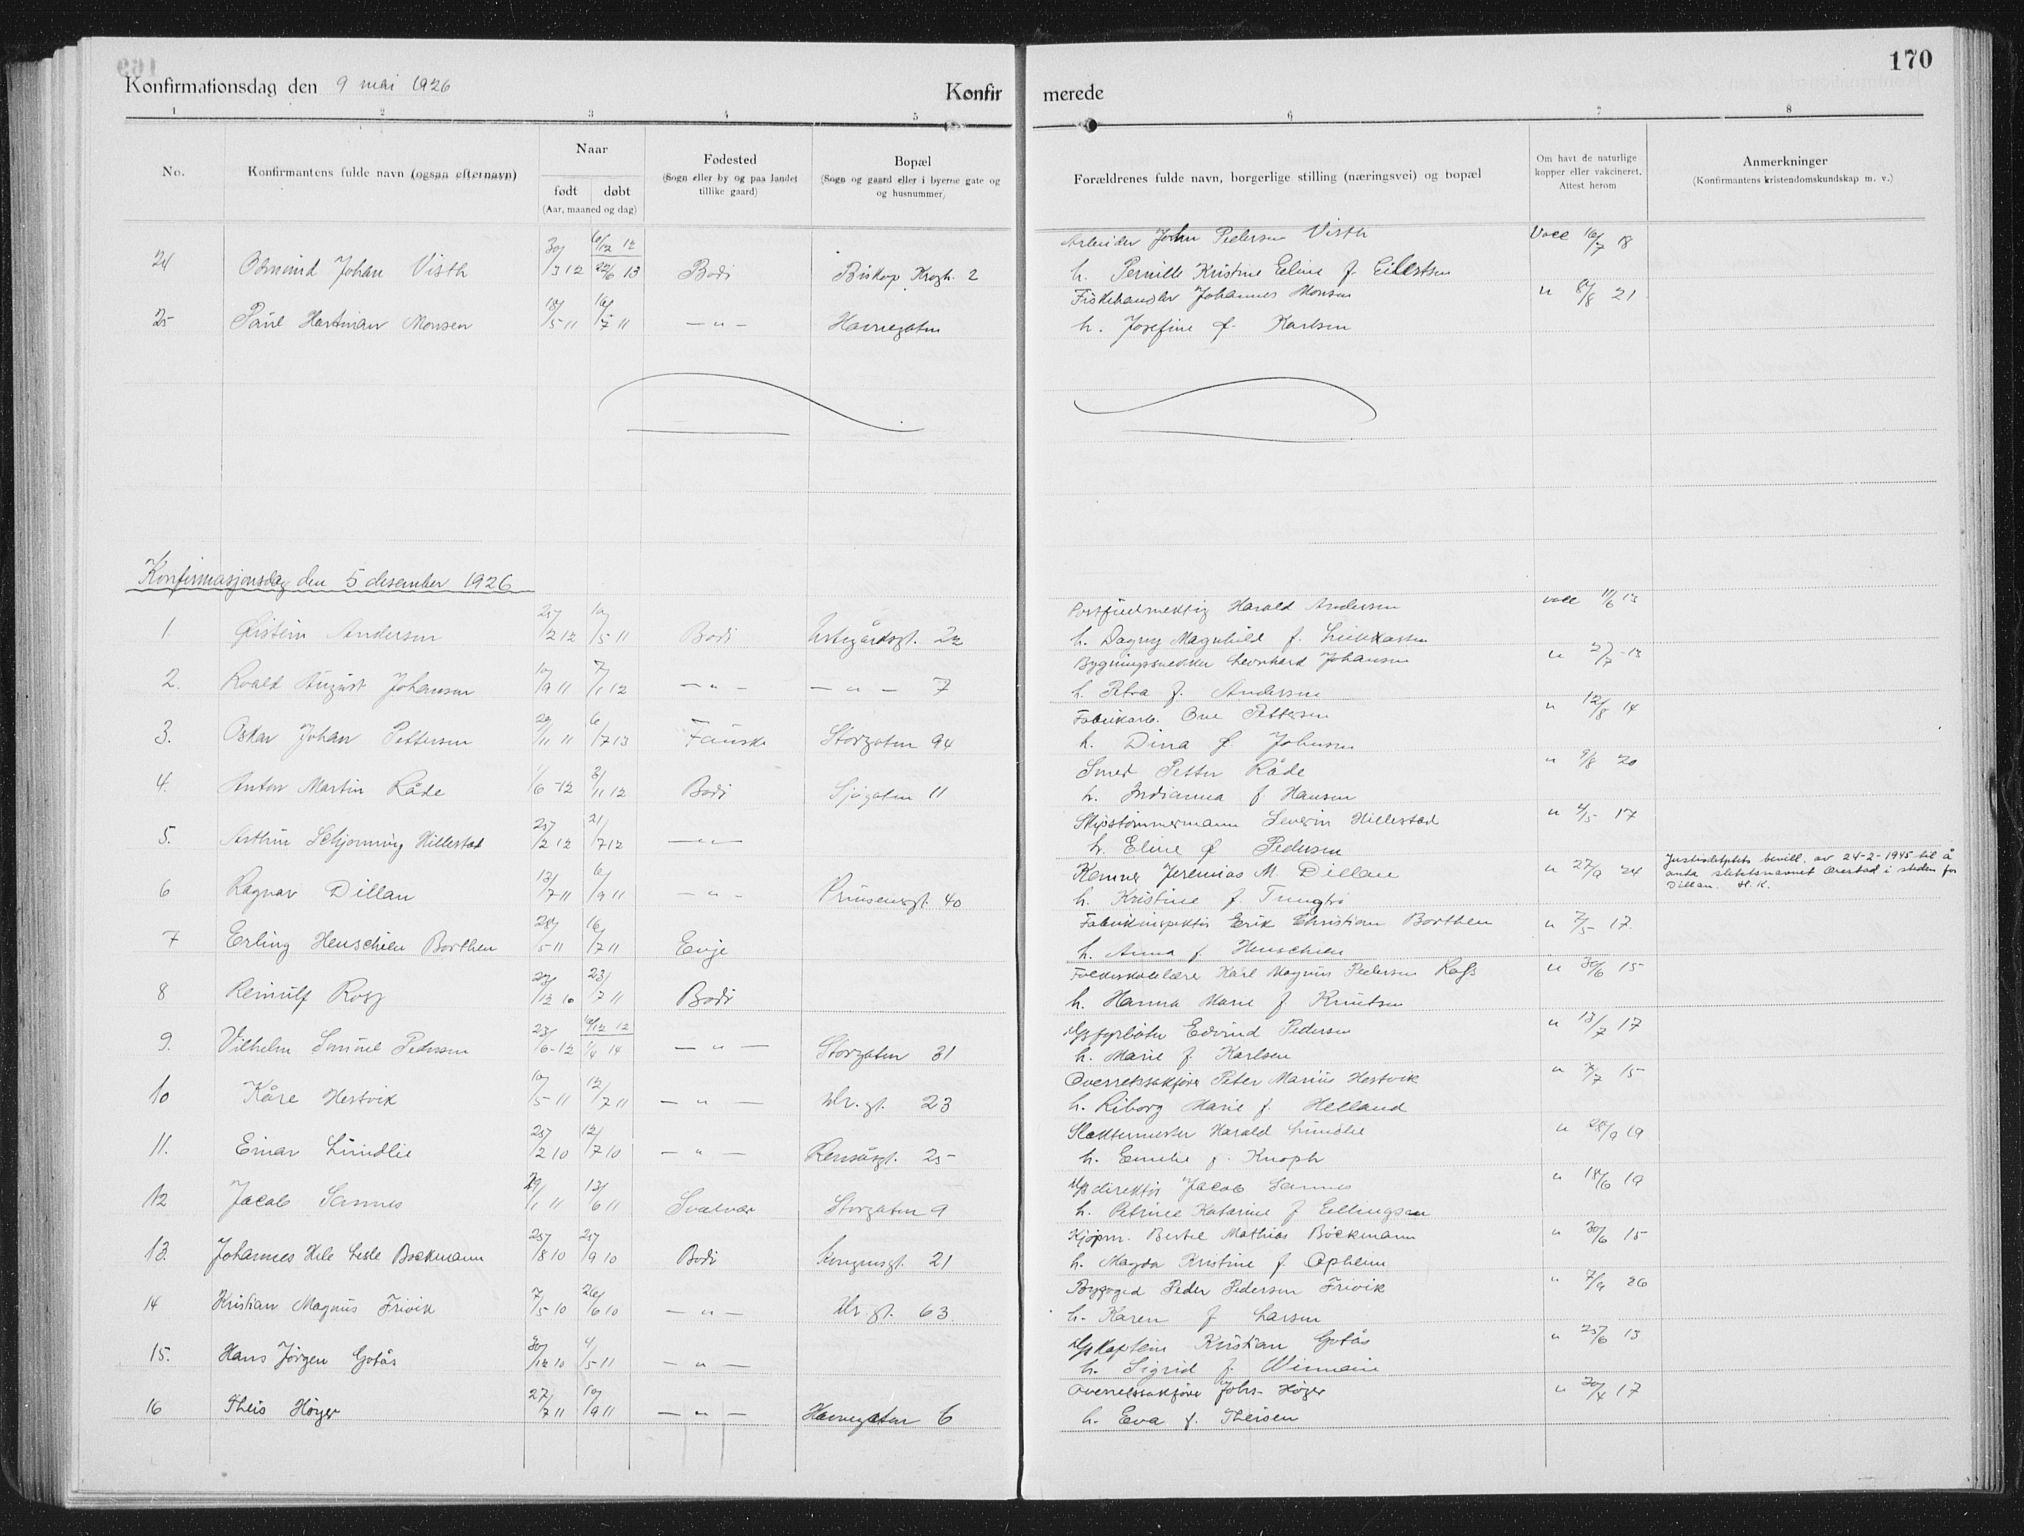 170
Konfirmationsdag den 9 mai 1926 Konfirmerede
1 2 3 4 5 6 7 8
No. Konfirmantens fulde navn (ogsaa efternavn) Naar født døbt (Aar, maaned og dag) Fødested (Sogn eller by og paa landet tillike gaard) Bopæl (Sogn og gaard eller i byerne gate og og husnummer) Forældrenes fulde navn, borgerlige stilling (næringsvei) og bopæl Om havt de naturlige kopper eller vakcineret. Attest herom Anmerkninger (Konfirmantens kristendomskundskap m. v.)
24 Osmund Johan Visth 30/3 12 6/12 12 22/6 13 Bodø Biskop Kroghs. 2 Arbeider John Pedersen Visth Vacc 16/7 18
h. Pernille Kristine Eline f. Eilertsen
25 Paul Hartman Monsen 18/5 11 16/7 11 — " — Havnegaten Fiskehandler Johannes Monsen " 8/8 21
h. Josefine f. Karlsen
Konfirmasjonsdag den 5 desember 1926
1. Øistein Andersen 25/2 12 10/5 11 Bodø 22 Postfuldmektig Harald Andersen vacc 11/6 13
h. Dagny Magnhild f.
2. Roald August Johansen 10/9 11 7/1 12 — " — — " — 7 Bygningssnekker Leonhard Johansen " 2/7 13
h. Petra f. Andersen
3. Oskar Johan Pettersen 29/11 11 6/7 13 Fauske Storgaten 94 Fabrikarb. Ove Pettersen " 12/8 14
h. Dina f. Johnsen
4. Anton Martin Råde 1/6 -12 3/11 12 Bodø Sjøgaten 11 Smed Petter Råde " 9/8 20
h. Indianna f. Hansen
5. Arthur Schjønning Hillestad 25/2 12 21/7 12 — " — Skipstømmermann Severin Hillestad " 4/5 17
h. Eline f Pedersen
6 Ragnar Dillan 13/7 11 6/9 11 — " — Prinsensgt. 40 Kemner Jeremias M. Dillan " 27/9 24 Justisdeptets bevill. av 24-2-1945 til å anta slektsnavnet Ørestad i steden for Dillan. H. K.
h. Kristine f.
7 Erling Henschien Borthen 28/5 11 16/7 11 Evje Fabrikinspektør Erik Christian Borthen " 7/5 17.
h. Anna f Henschien
8 Reinulf 23/12 10 23/7 11 Bodø Folkeskolelærer Karl Magnus Pedersen " 30/6 15
h. Hanna Marie f Knutsen
9. Vilhelm Samuel Pedersen 23/6 -12 12 1/4 14 — " — Storgaten 31 Edvind Pedersen " 13/7 17
h. Marie f. Karlsen
10 Kåre Hestvik 10/5 11 12/7 11 — " — Kr. gt. 23 Overretssakfører Peter Marius Hestvik 15
h. Riborg Marie f. Helland
11. Einar Lundlie 25/2 10 12/7 10 — " — Rensåsgt. 25 Slaktermester Harald Lundlie " 28/9 19
h. Emelie f. Knoph
12 Jacob Sannes 29/1 11 13/6 11 Svolvær Storgaten 9 direktør Jacob Sannes " 18/6 19
h. Petrine Katarine f Ellingsen
13. Johannes Bøckmann 25/8 10 25/9 10 Bodø Kongensgt. 21 Kjøpm. Bertel Mathias Bøckmann " 30/6 15
h. Magda Kristine f. Opheim
14 Kristian Magnus Frivik 7/5 10 26/6 10 — " — Kr. gt. 63. Byfoged Peder Pedersen Frivik " 7/9 26
h. Karen f Larsen
15. Hans Jørgen Gotås 30/12 10 4/5 11 — " — kaptein Kristian Gotås " 25/6 13
h. Sigrid f.
16 Theis Høyer 27/7 11 10/9 11 — " — Havnegaten 6 Overretssakfører Johs. Høyer " 20/4 17
h. Eva f. Theisen